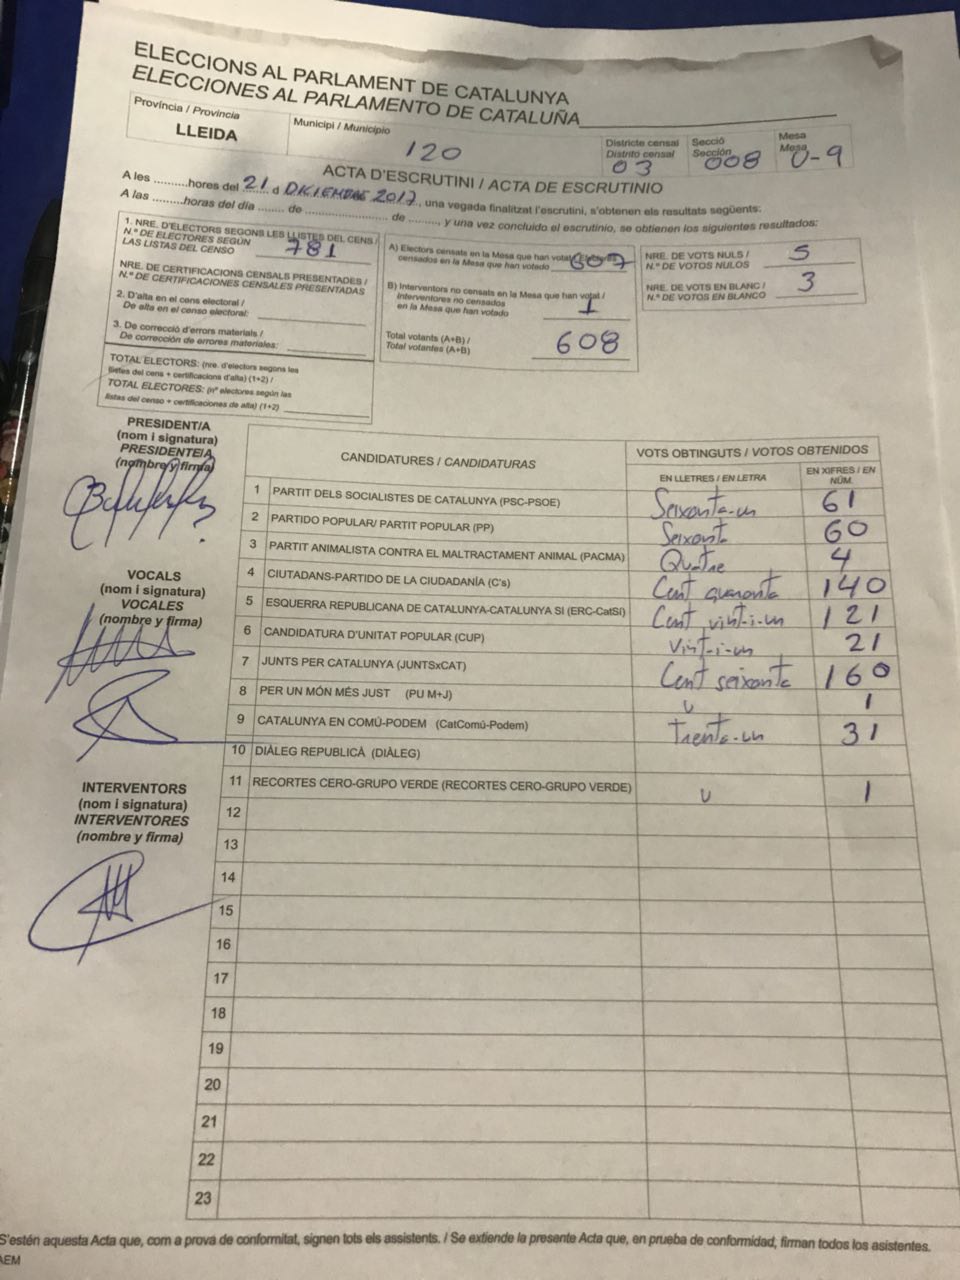 ELECCIONS AL PARLAMENT DE CATALUNYA
ELECCIONES AL PARLAMENTO DE CATALUÑA
Província / Provincia
LLEIDA
Municipi / Municipio
120
Districte censal
Distrito censal
03
Secció
Sección
008
Mesa
Mesa
U-9
ACTA D'ESCRUTINI / ACTA DE ESCRUTINIO
A les ..........hores del 21 d DICIEMBRE 2017, una vegada finalitzat l'escrutini, s'obtenen els resultats següents:
A las ..........horas del día ........ de ........................ de ........, y una vez concluido el escrutinio, se obtienen los siguientes resultados:
1. NRE. D'ELECTORS SEGONS LES LLISTES DEL CENS /
N.º DE ELECTORES SEGÚN
LAS LISTAS DEL CENSO
781
NRE. DE CERTIFICACIONS CENSALS PRESENTADES /
N.º DE CERTIFICACIONES CENSALES PRESENTADAS
2. D'alta en el cens electoral /
De alta en el censo electoral:
3. De correcció d'errors materials /
De corrección de errores materiales:
TOTAL ELECTORS: (nre. d'electors segons les
llistes del cens + certificacions d'alta) (1+2) /
TOTAL ELECTORES: (nº electores según las
listas del censo + certificaciones de alta) (1+2)
A) Electors censats en la Mesa que han votat / Electores
censados en la Mesa que han votado
607
B) Interventors no censats en la Mesa que han votat /
Interventores no censados
en la Mesa que han votado
1
Total votants (A+B) /
Total votantes (A+B)
608
NRE. DE VOTS NULS /
N.º DE VOTOS NULOS
5
NRE. DE VOTS EN BLANC /
N.º DE VOTOS EN BLANCO
3
PRESIDENT/A
(nom i signatura)
PRESIDENTE/A
(nombre y firma)
VOCALS
(nom i signatura)
VOCALES
(nombre y firma)
INTERVENTORS
(nom i signatura)
INTERVENTORES
(nombre y firma)
CANDIDATURES / CANDIDATURAS
VOTS OBTINGUTS / VOTOS OBTENIDOS
EN LLETRES / EN LETRA
EN XIFRES / EN NÚM.
1 PARTIT DELS SOCIALISTES DE CATALUNYA (PSC-PSOE) Seixanta-un 61
2 PARTIDO POPULAR/ PARTIT POPULAR (PP) Seixanta 60
3 PARTIT ANIMALISTA CONTRA EL MALTRACTAMENT ANIMAL (PACMA) Quatre 4
4 CIUTADANS-PARTIDO DE LA CIUDADANÍA (C's) Cent quaranta 140
5 ESQUERRA REPUBLICANA DE CATALUNYA-CATALUNYA SI (ERC-CatSí) Cent vint-i-un 121
6 CANDIDATURA D'UNITAT POPULAR (CUP) Vint-i-un 21
7 JUNTS PER CATALUNYA (JUNTSxCAT) Cent seixanta 160
8 PER UN MÓN MÉS JUST (PU M+J) U 1
9 CATALUNYA EN COMÚ-PODEM (CatComú-Podem) Trenta-un 31
10 DIÀLEG REPUBLICÀ (DIÀLEG)
11 RECORTES CERO-GRUPO VERDE (RECORTES CERO-GRUPO VERDE) U 1
12
13
14
15
16
17
18
19
20
21
22
23
S'estén aquesta Acta que, com a prova de conformitat, signen tots els assistents. / Se extiende la presente Acta que, en prueba de conformidad, firman todos los asistentes.
AEM